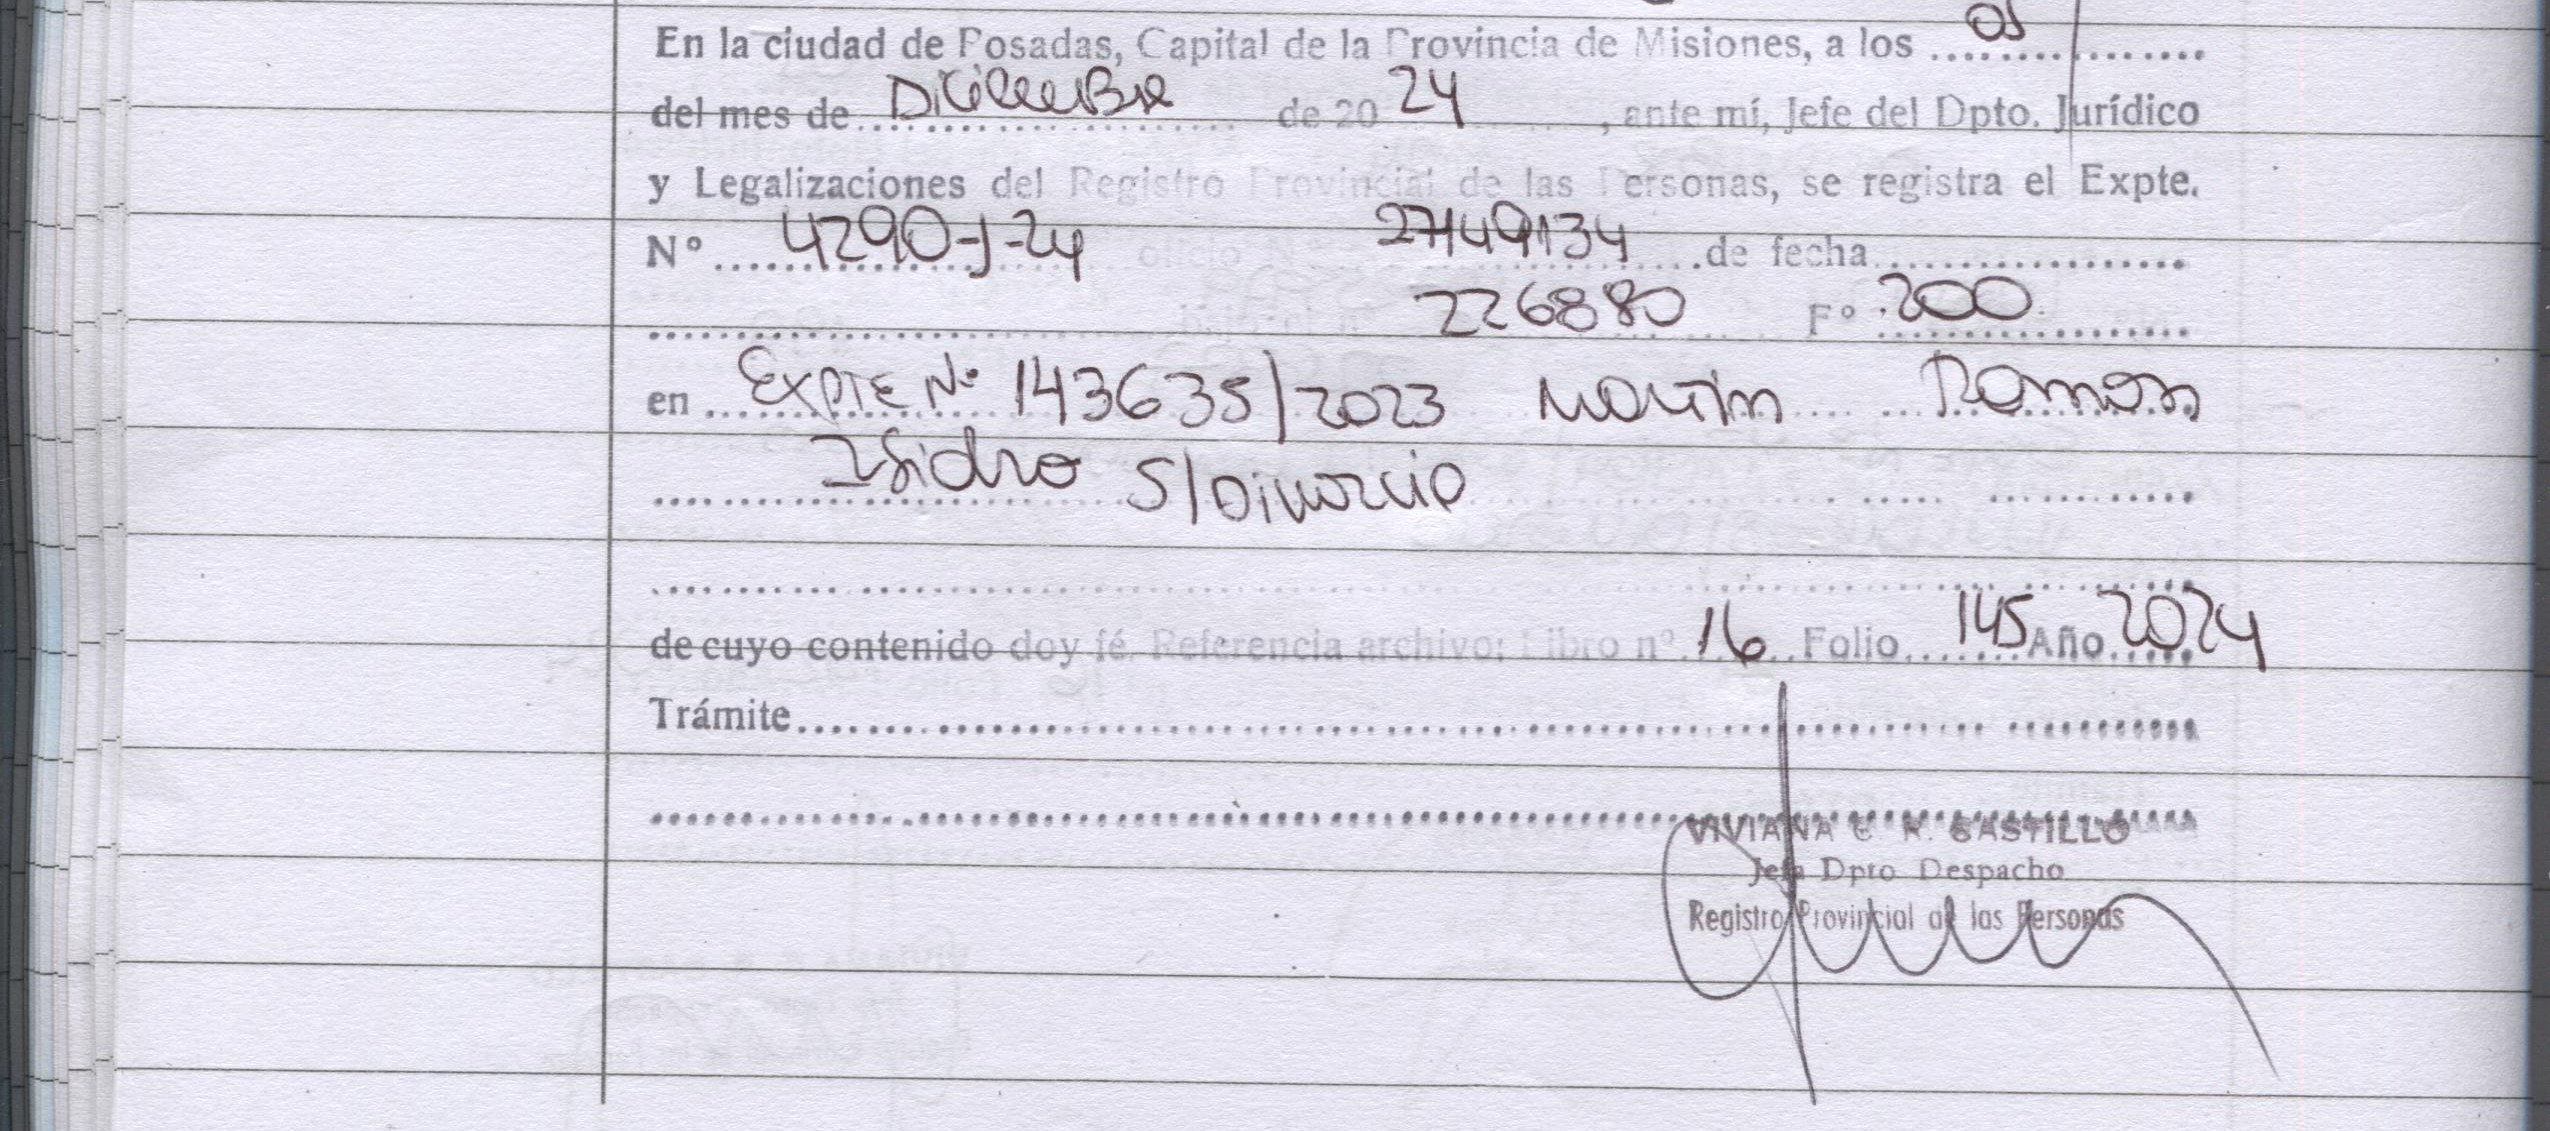 En la ciudad de Posadas, Capital de la Provincia de Misiones, a los ...............
del mes de Diciembre de 20 24 , ante mí, Jefe del Dpto. Jurídico
y Legalizaciones del Registro Provincial de las Personas, se registra el Expte.
Nº 4290-J-24 oficio Nº 27149134 de fecha
226880 Fº 200
en Expte Nº 143635/2023 Martin Ramon
Isidro S/Divorcio
de cuyo contenido doy fé. Referencia archivo: Libro nº 16 Folio 145 Año 2024
Trámite
VIVIANA E. R. CASTILLO
Jefa Dpto Despacho
Registro Provincial de las Personas